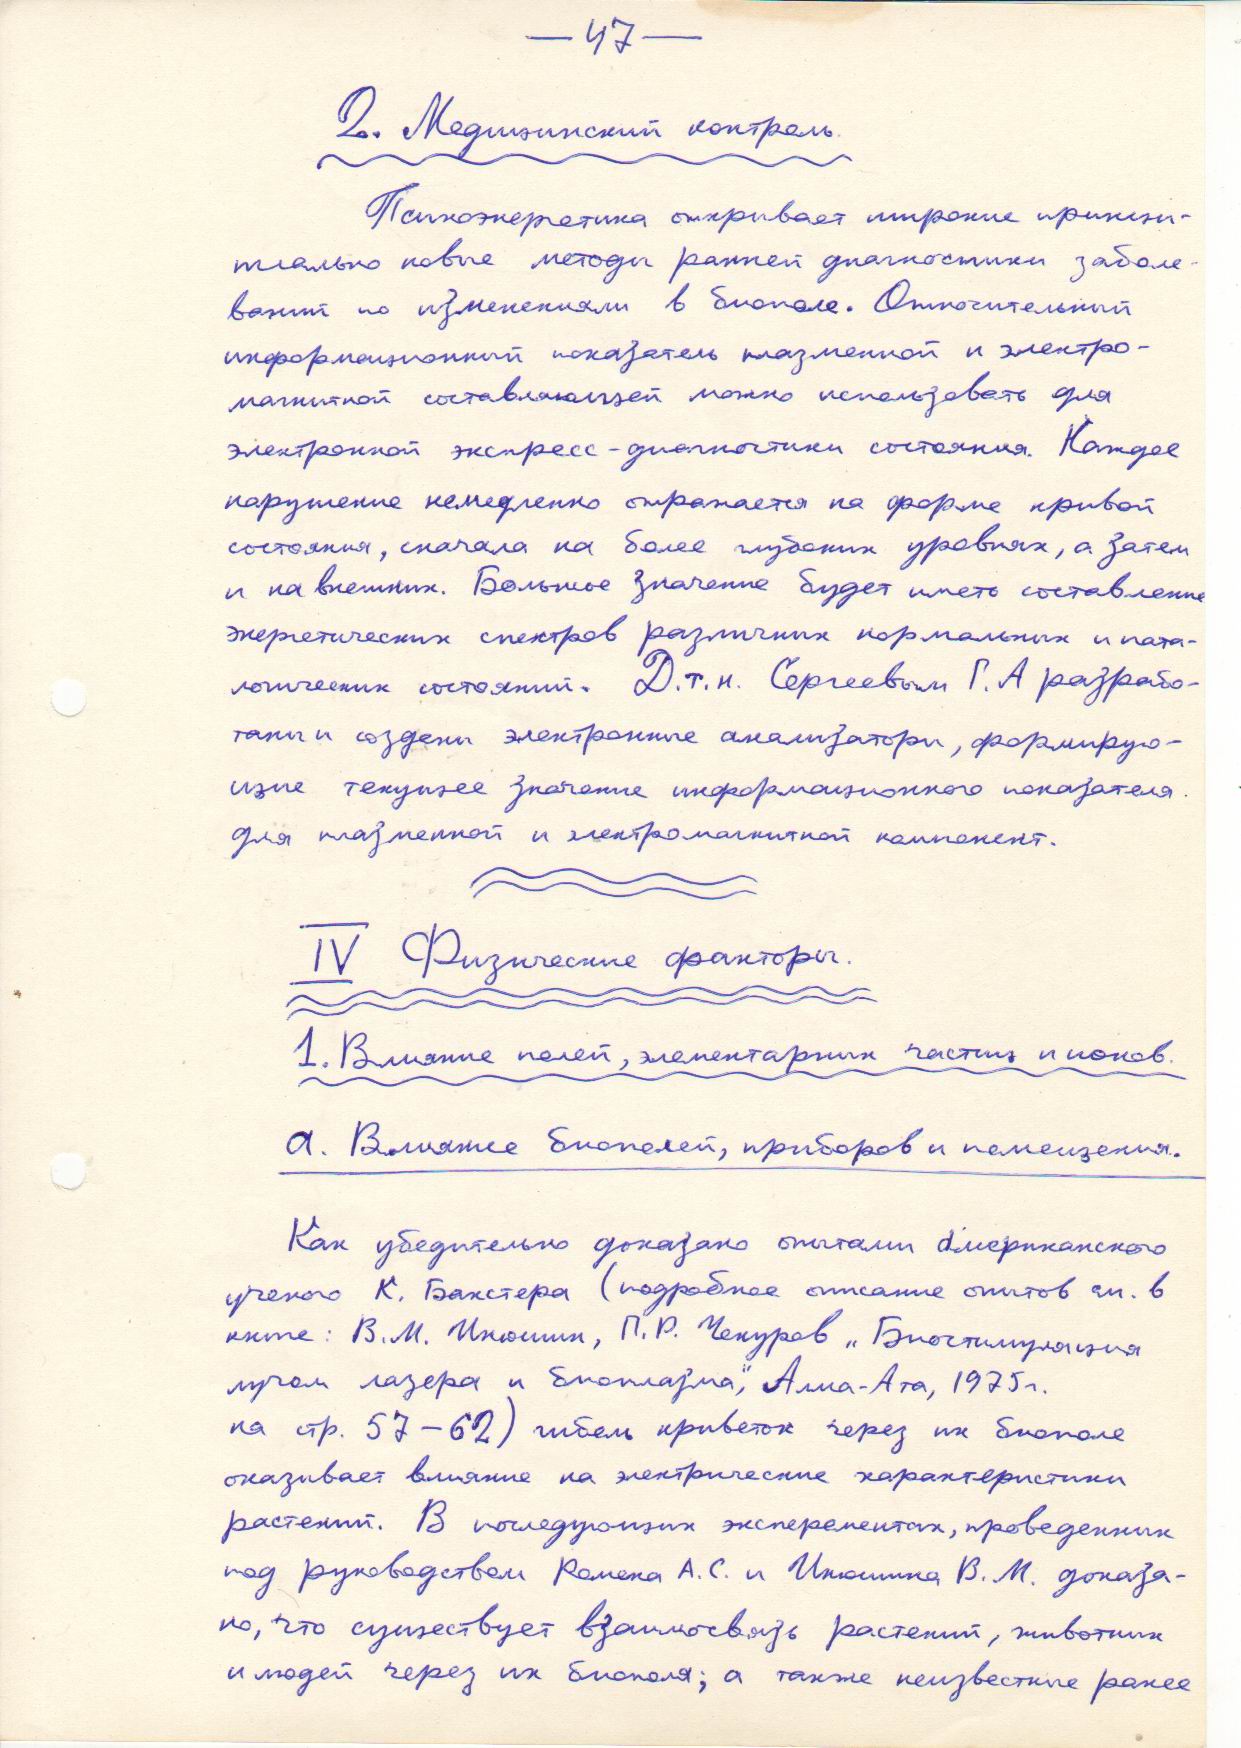 — 47 —
2. Медицинский контроль.
Психоэнергетика открывает широкие принци-
пиально новые методы ранней диагностики заболе-
ваний по изменениям в биополе. Относительный
информационный показатель плазменной и электро-
магнитной составляющей можно использовать для
электронной экспресс-диагностики состояния. Каждое
нарушение немедленно отражается на форме кривой
состояния, сначала на более глубоких уровнях, а затем
и на внешних. Большое значение будет иметь составление
энергетических спектров различных нормальных и пата-
логических состояний. Д.т.н. Сергеевым Г.А разрабо-
таны и созданы электронные анализаторы, формирую-
щие текущее значение информационного показателя
для плазменной и электромагнитной компонент.
IV Физические факторы.
1. Влияние полей, элементарных частиц и ионов.
а. Влияние биополей, приборов и помещения.
Как убедительно доказано опытами американского
ученого К. Бакстера (подробное описание опытов см. в
книге: В.М. Инюшин, П.Р. Чекуров „Биостимуляция
лучом лазера и биоплазма", Алма-Ата, 1975г.
на стр. 57–62) гибель креветок через их биополе
оказывает влияние на электрические характеристики
растений. В последующих эксперементах, проведенных
под руководством Ромена А.С. и Инюшина В.М. доказа-
но, что существует взаимосвязь растений, животных
и людей через их биополя; а также неизвестные ранее